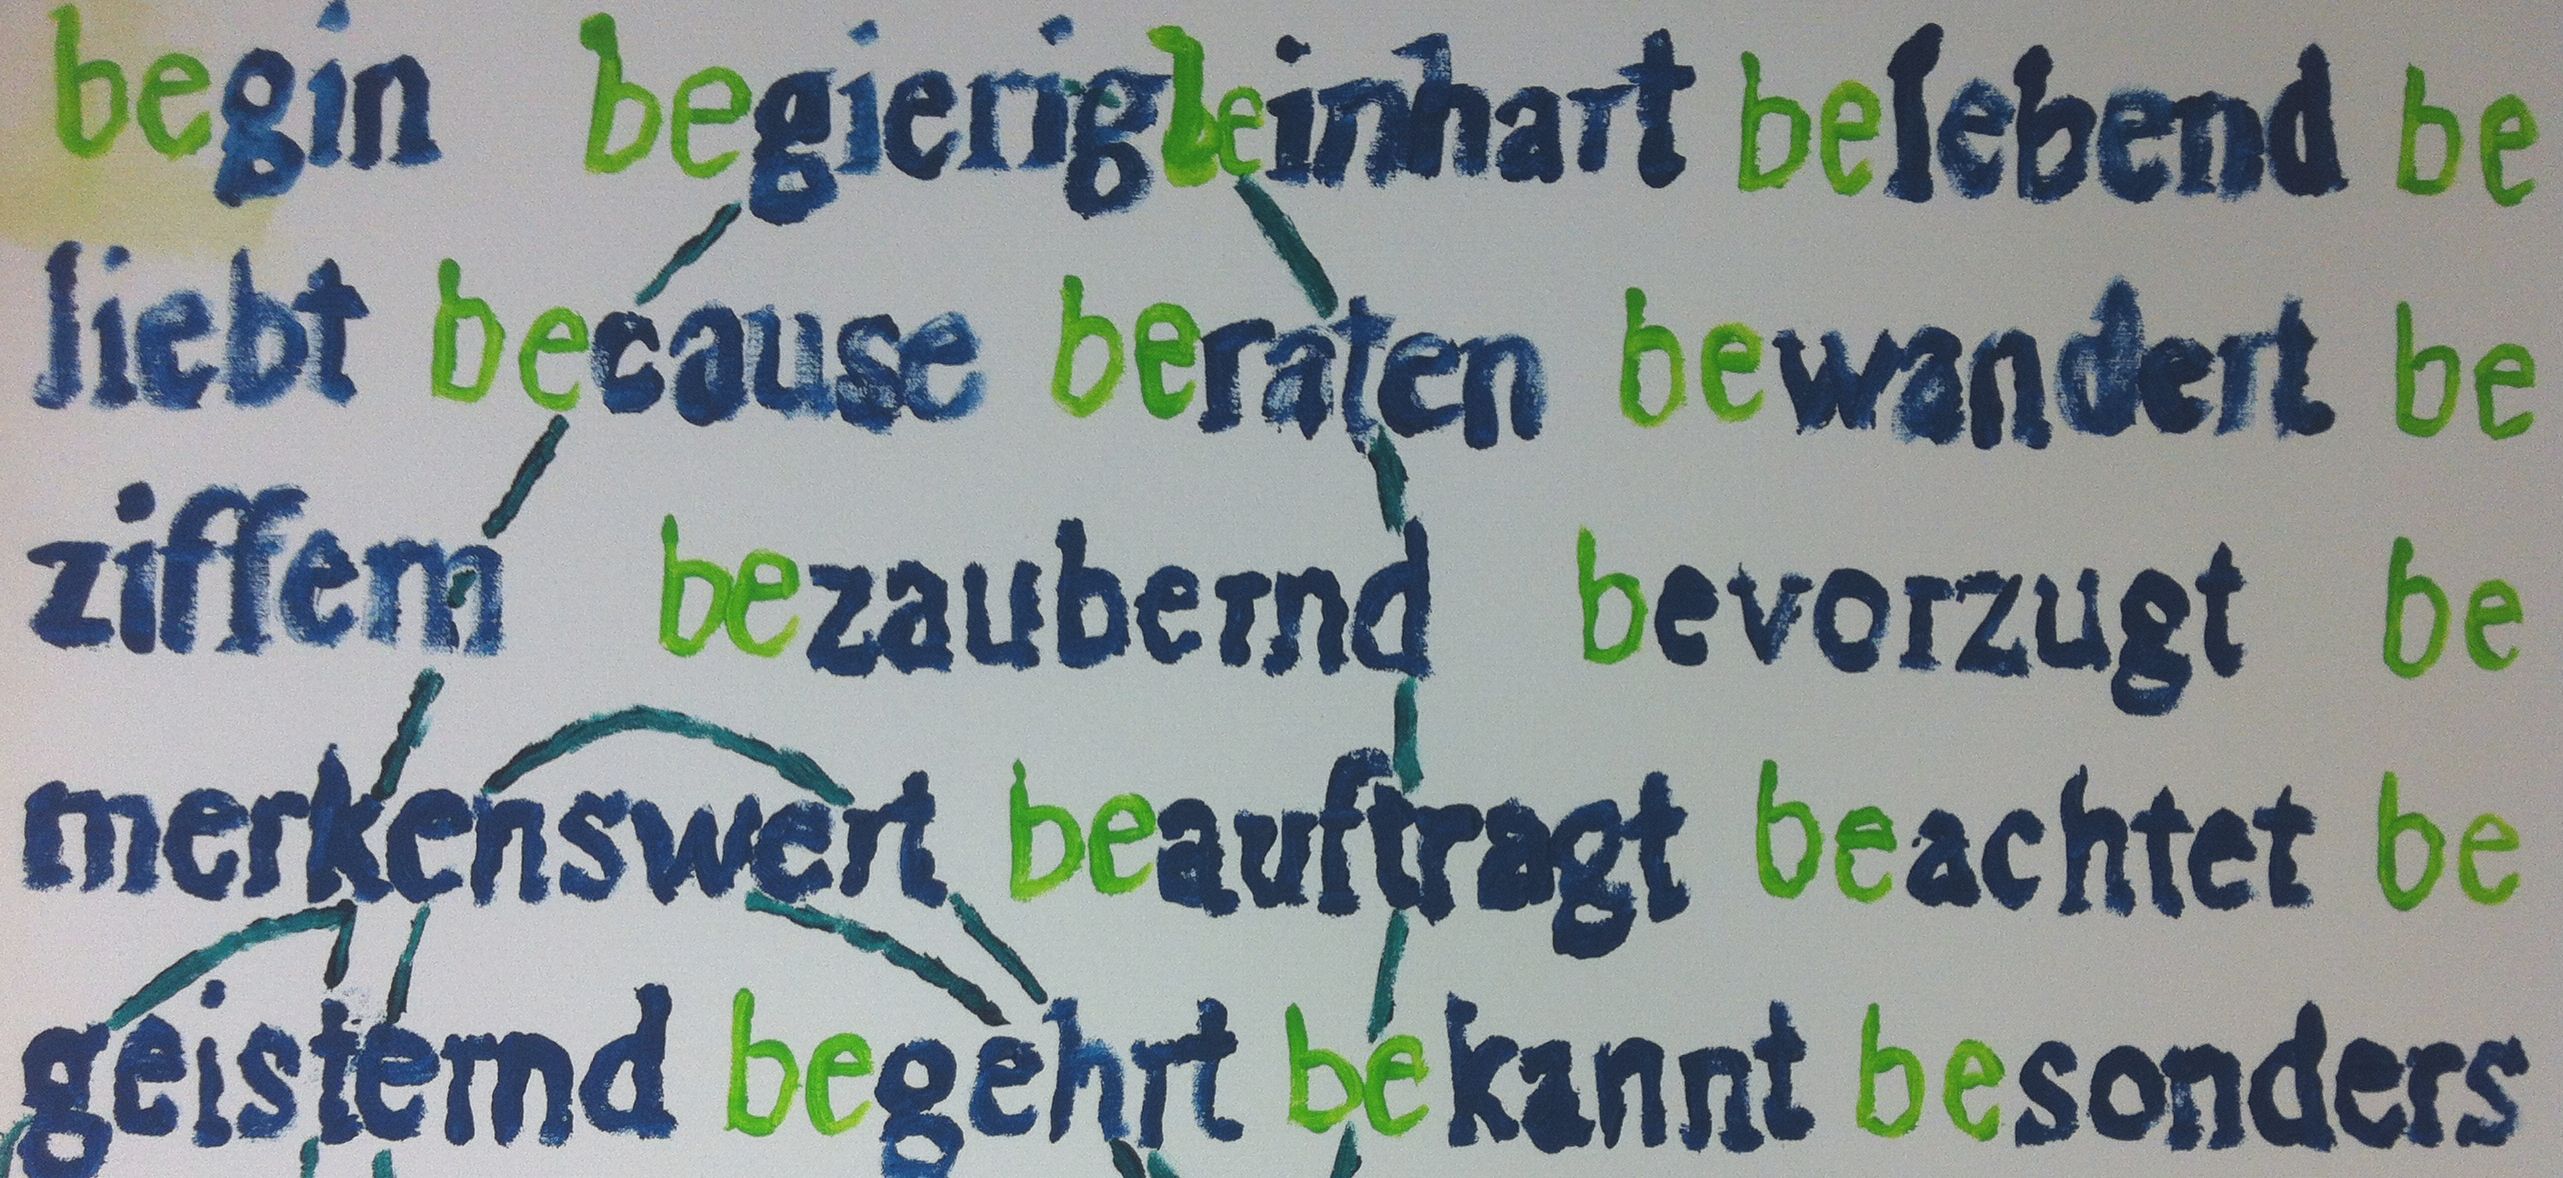 begin begierig beinhart belebend be
liebt because beraten bewandert be
ziffern bezaubernd bevorzugt be
merkenswert beauftragt beachtet be
geisternd begehrt bekannt besonders